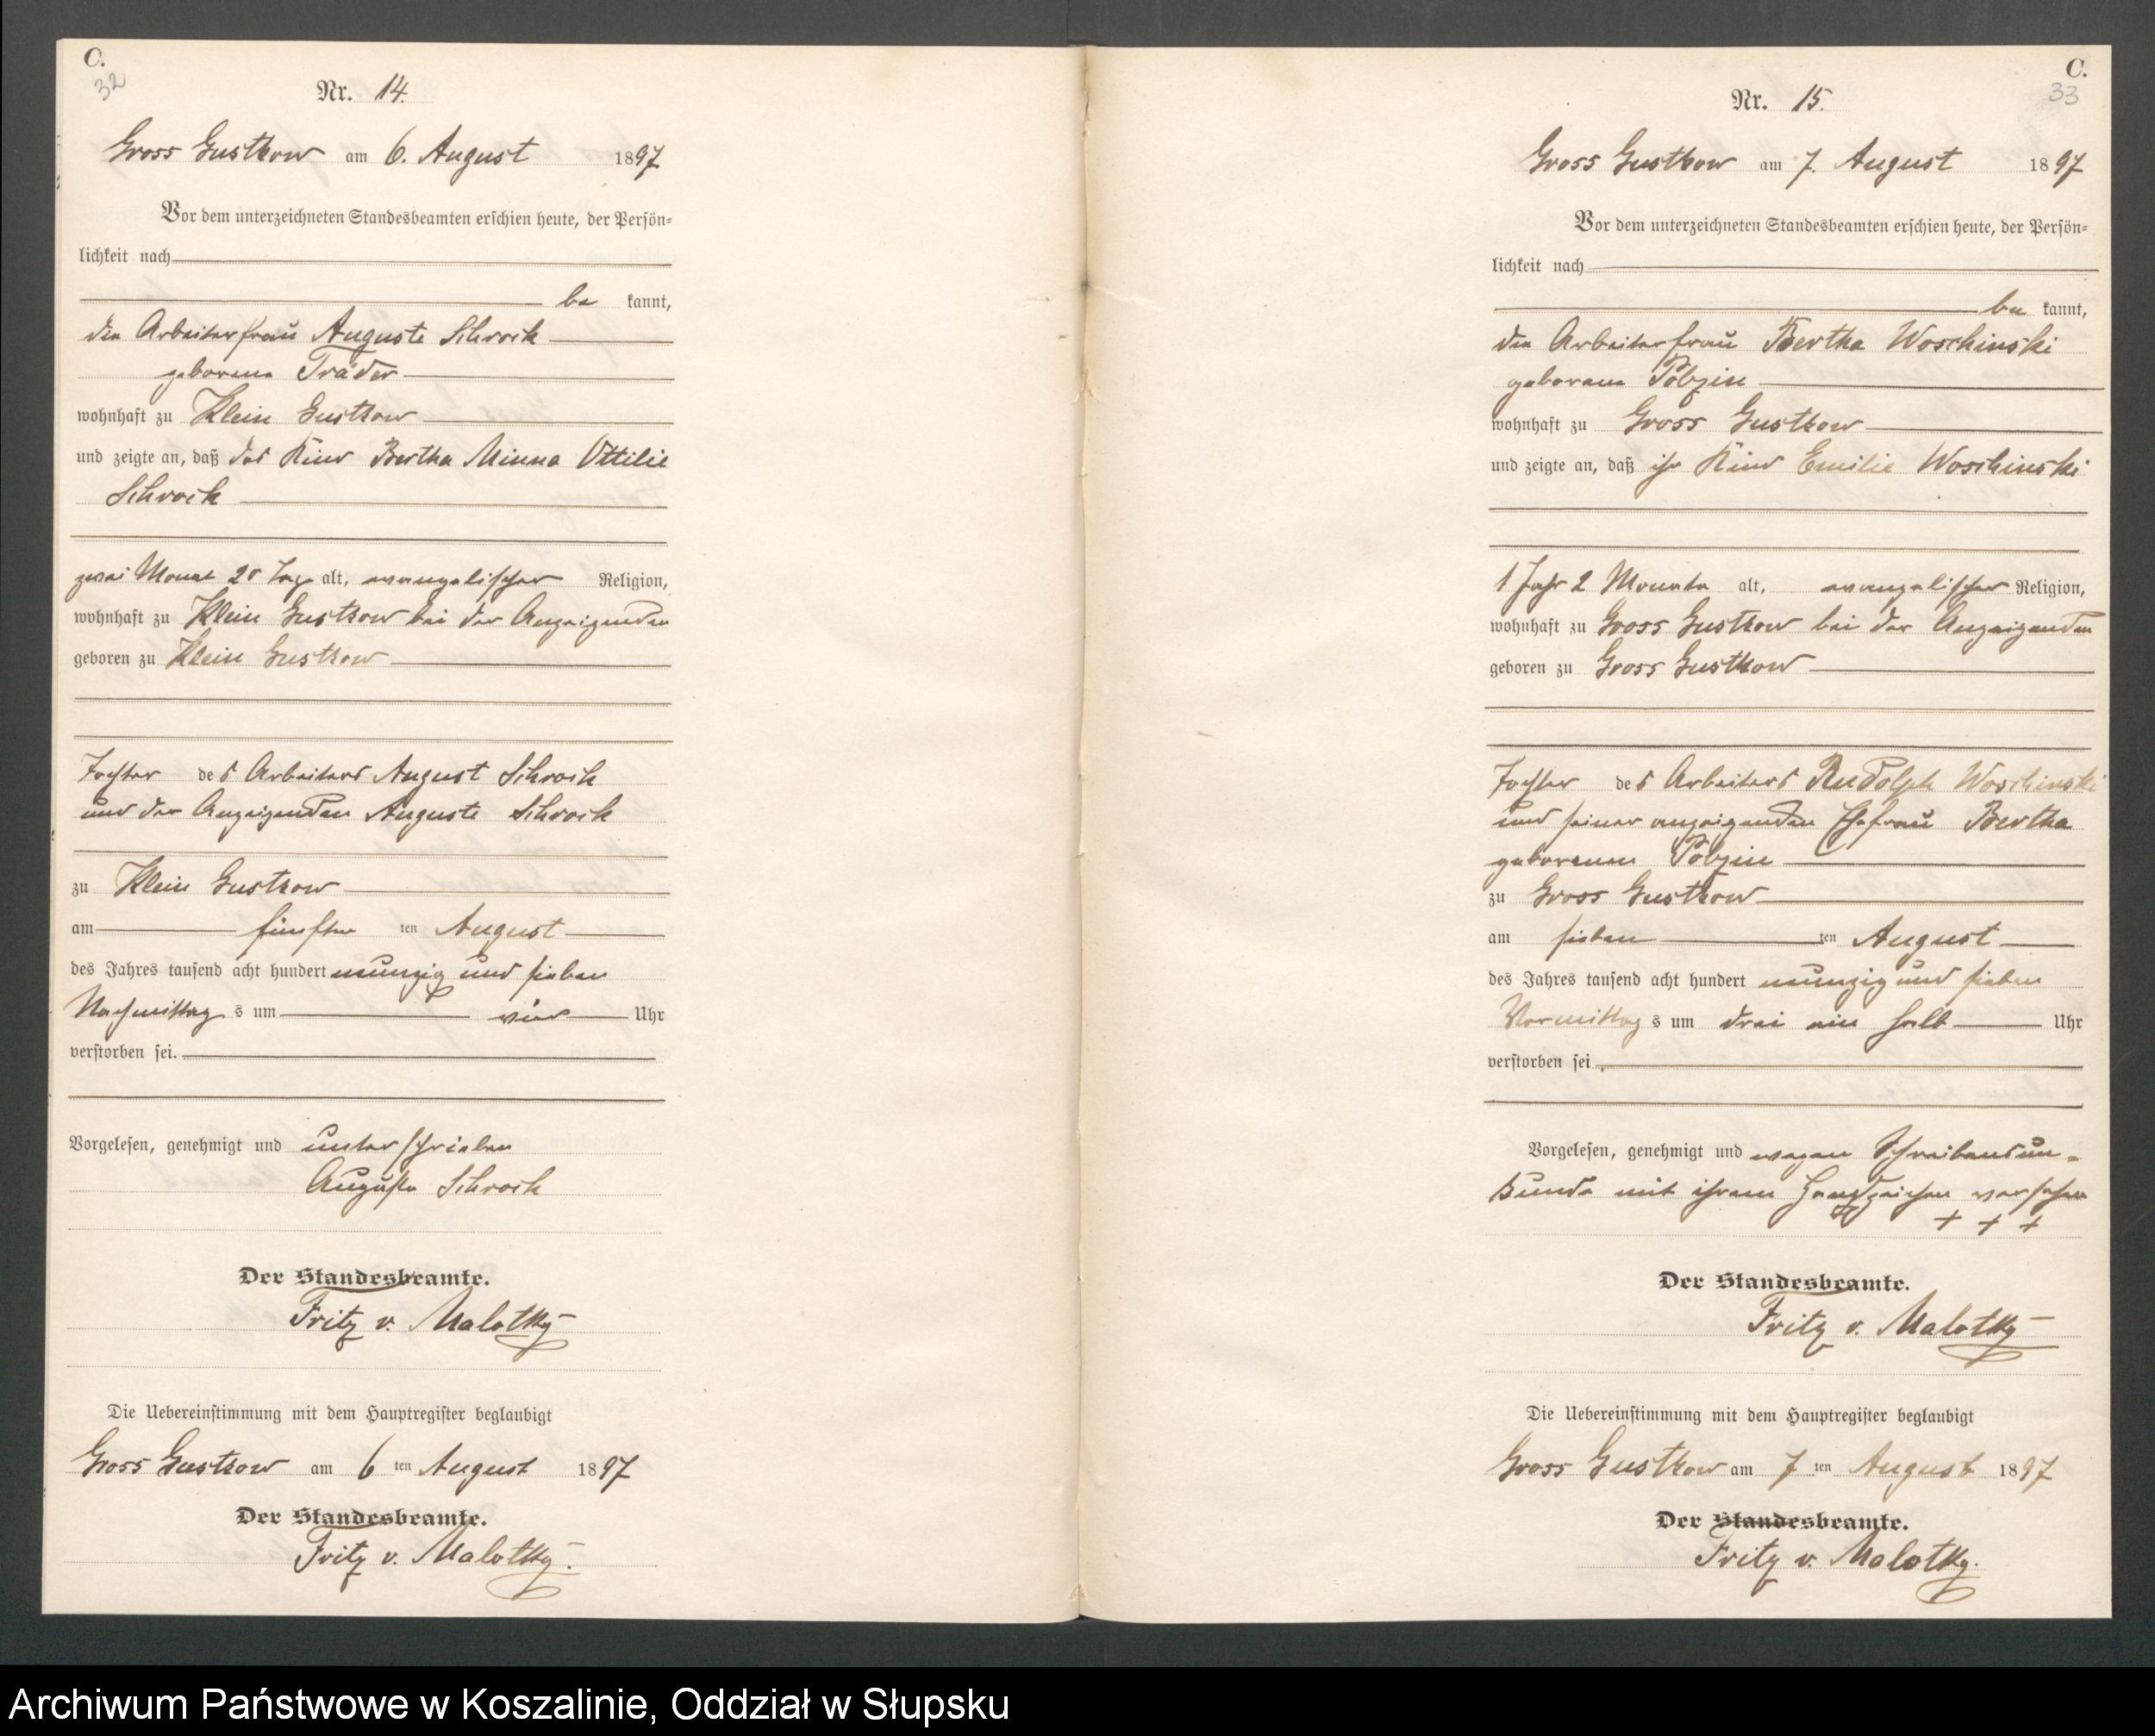 C.
32
Nr. 14.
Gross Gustkow am 6. August 1897
Vor dem unterzeichneten Standesbeamten erschien heute, der Persön-
lichkeit nach
be kannt,
die Arbeiterfrau Auguste Schrock
geborene Träder
wohnhaft zu Klein Gustkow
und zeigte an, daß das Kind Bertha Minna Ottilie
Schrock
zwei Monat 20 Tage alt, evangelischer Religion,
wohnhaft zu Klein Gustkow bei der Anzeigenden
geboren zu Klein Gustkow
Tochter des Arbeiters August Schrock
und der Anzeigenden Auguste Schrock
zu Klein Gustkow
am fünften ten August
des Jahres tausend acht hundert neunzig und sieben
Nachmittag s um vier Uhr
verstorben sei.
Vorgelesen, genehmigt und unterschrieben
Auguste Schrock
Der Standesbeamte.
Fritz v. Malotky
Die Uebereinstimmung mit dem Hauptregister beglaubigt
Gross Gustkow am 6 ten August 1897
Der Standesbeamte.
Fritz v. Malotky.
C.
33
Nr. 15.
Gross Gustkow am 7. August 1897
Vor dem unterzeichneten Standesbeamten erschien heute, der Persön-
lichkeit nach
be kannt,
die Arbeiterfrau Bertha Woschinski
geborene Polzin
wohnhaft zu Gross Gustkow
und zeigte an, daß ihr Kind Emilie Woschinski
1 Jahr 2 Monate alt, evangelischer Religion,
wohnhaft zu Gross Gustkow bei der Anzeigenden
geboren zu Gross Gustkow
Tochter des Arbeiters Rudolph Woschinski
und seiner anzeigenden Ehefrau Bertha
geborenen Polzin
zu Gross Gustkow
am sieben ten August
des Jahres tausend acht hundert neunzig und sieben
Vormittag s um drei ein halb Uhr
verstorben sei.
Vorgelesen, genehmigt und wegen Schreibensun-
kunde mit ihrem Handzeichen versehen
+ + +
Der Standesbeamte.
Fritz v. Malotky
Die Uebereinstimmung mit dem Hauptregister beglaubigt
Gross Gustkow am 7 ten August 1897
Der Standesbeamte.
Fritz v. Malotky.
Archiwum Państwowe w Koszalinie, Oddział w Słupsku